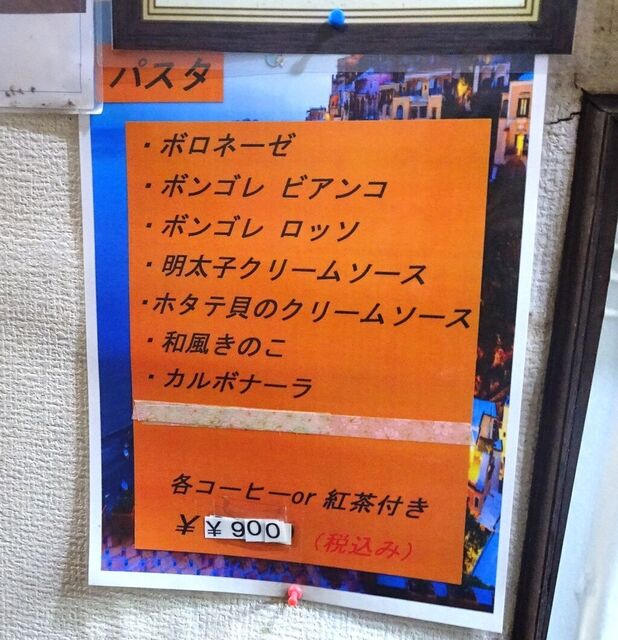 パスタ
・ボロネーゼ
・ボンゴレ ビアンコ
・ボンゴレ ロッソ
・明太子クリームソース
・ホタテ貝のクリームソース
・和風きのこ
・カルボナーラ
各コーヒーor 紅茶付き
¥ ¥900 (税込み)